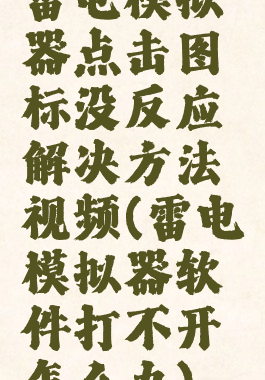 雷电模拟
器点击图
标没反应
解决方法
视频(雷电
模拟器软
件打不开
怎么办)